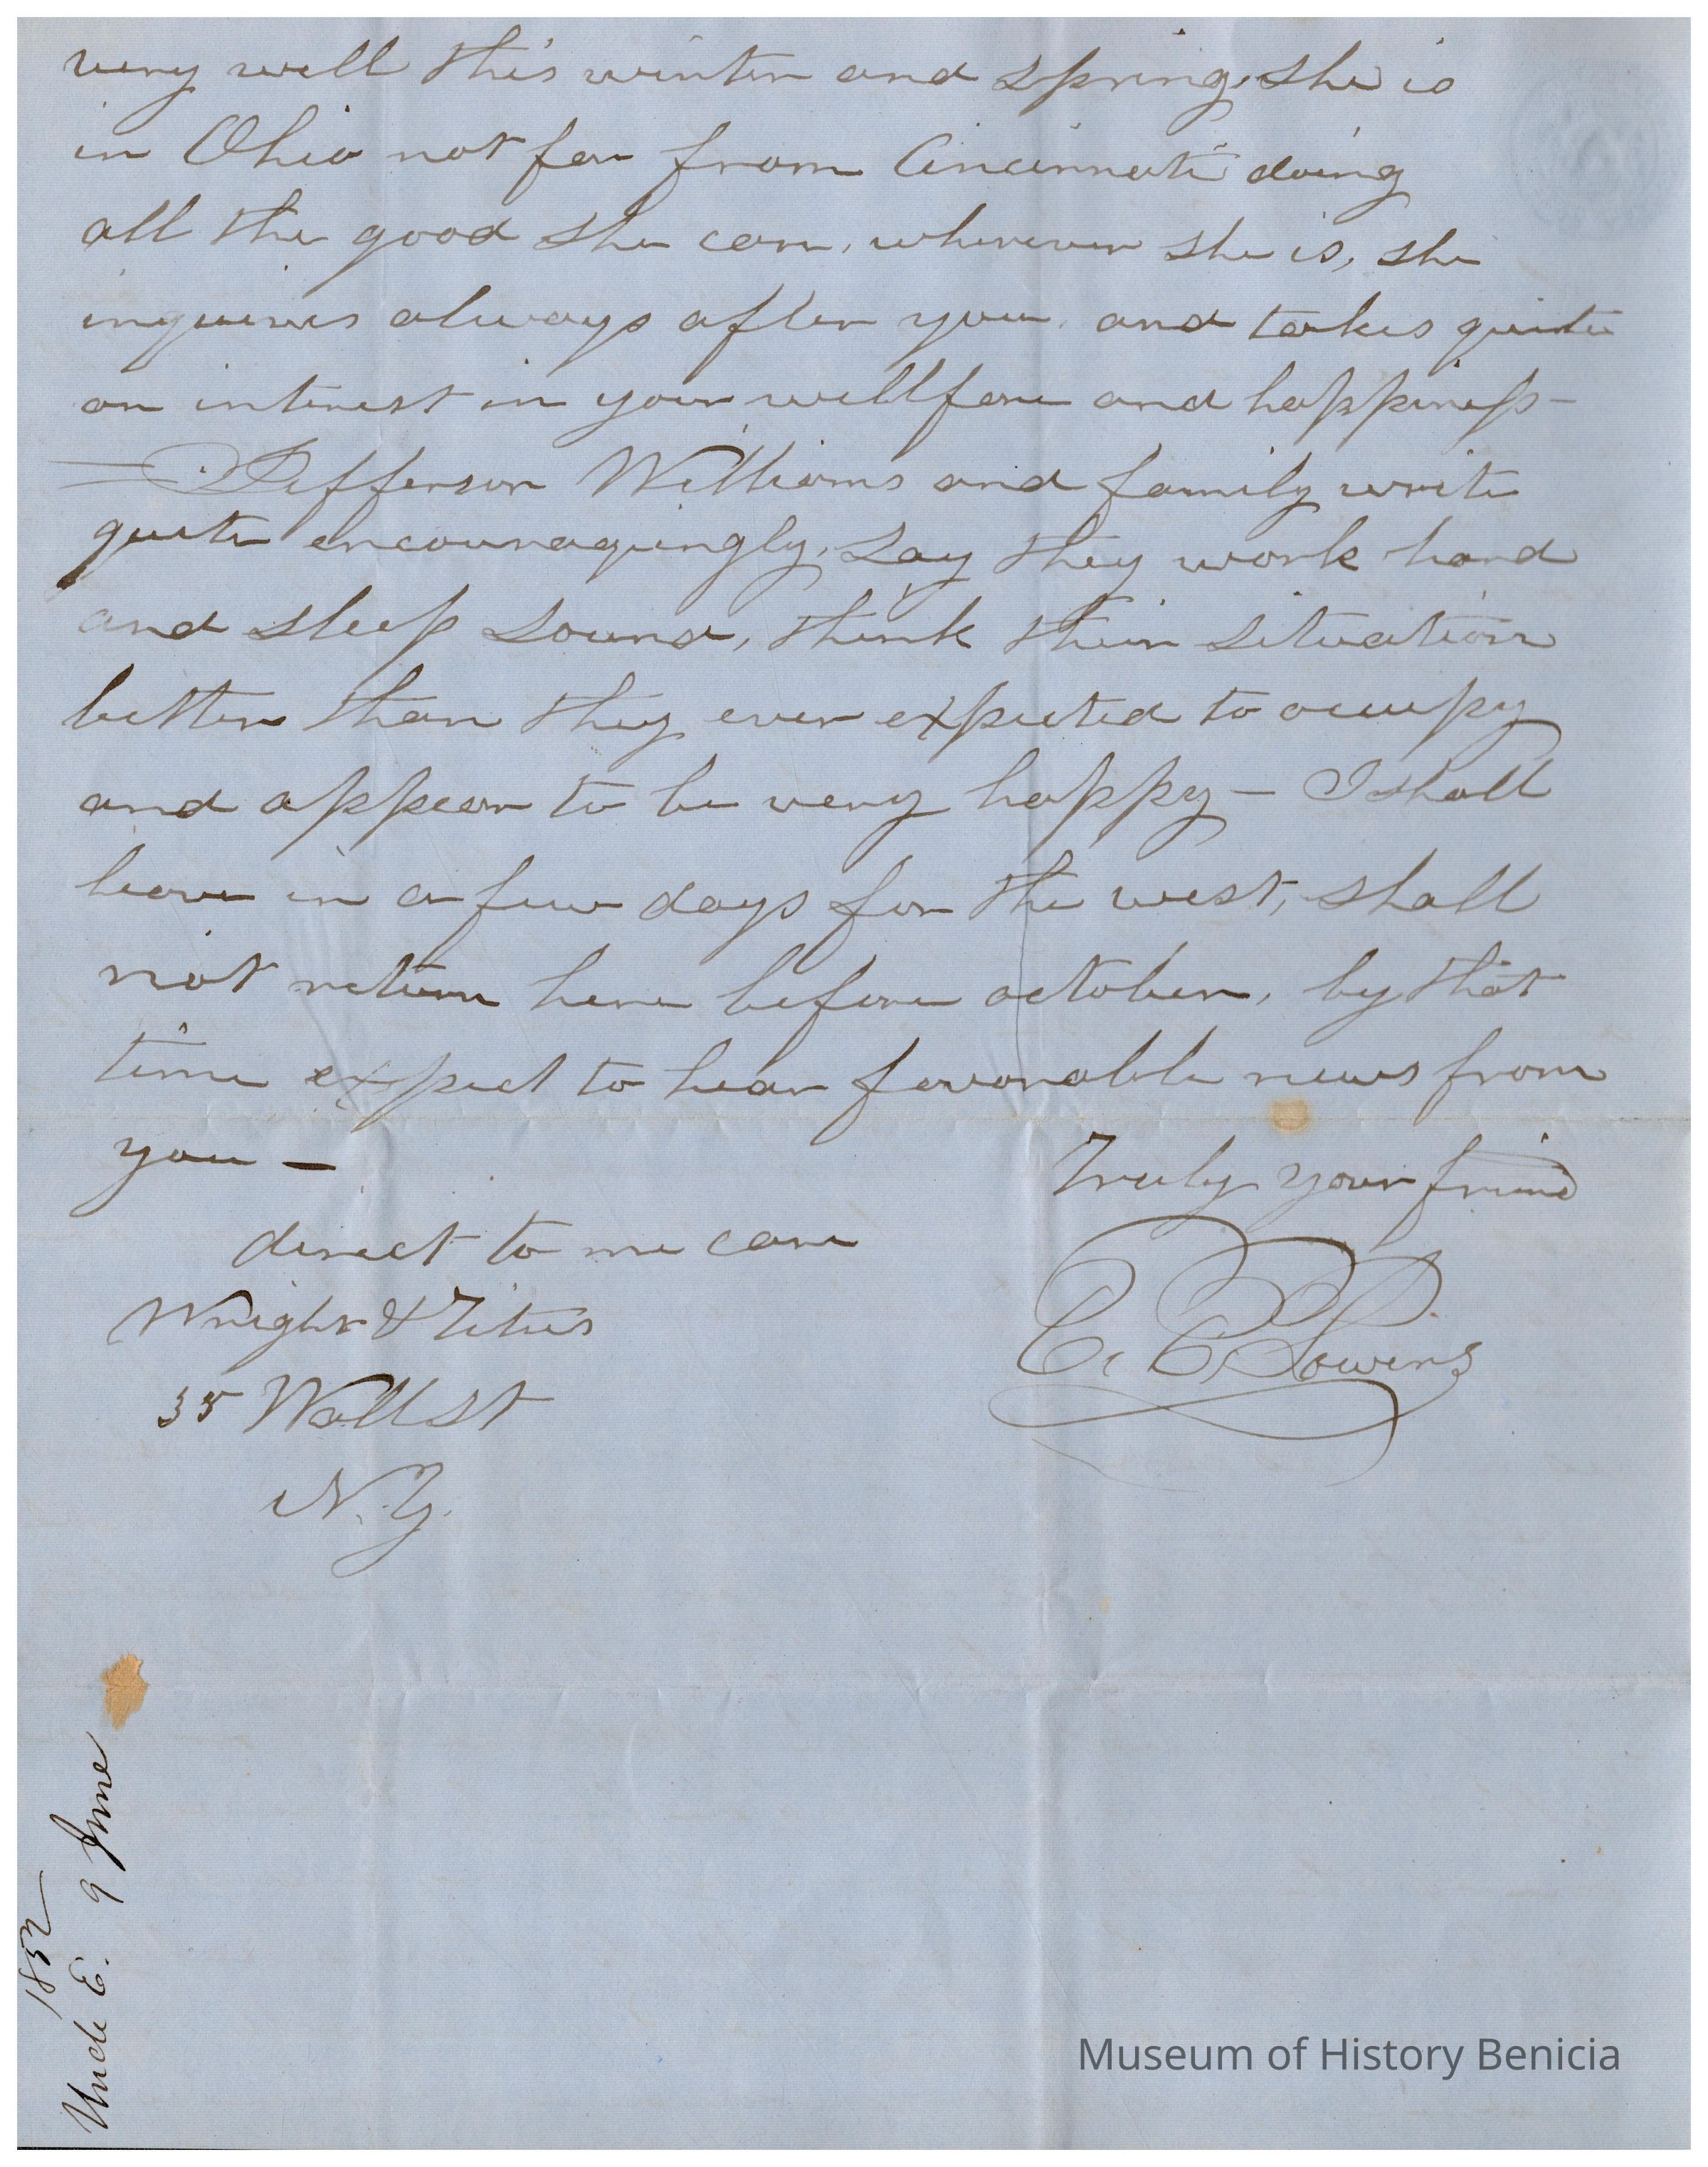 very well this winter and spring, she is
in Ohio not far from Cincinnati doing
all the good she can, wherever she is, she
inquires always after you and takes quite
an interest in your wellfare and happiness -
Jefferson Williams and family write
quite encouraguingly, say they work hard
and sleep sound, think their situation
better than they ever expected to occupy
and appear to be very happy - I shall
leave in a few days for the west, shall
not return here before october, by that
time expect to hear favorable news from
you -
Truly your friend
direct to me care
Wright & Titus
35 Wall St
N.Y.
1852
Uncle E. 9 June
Museum of History Benicia